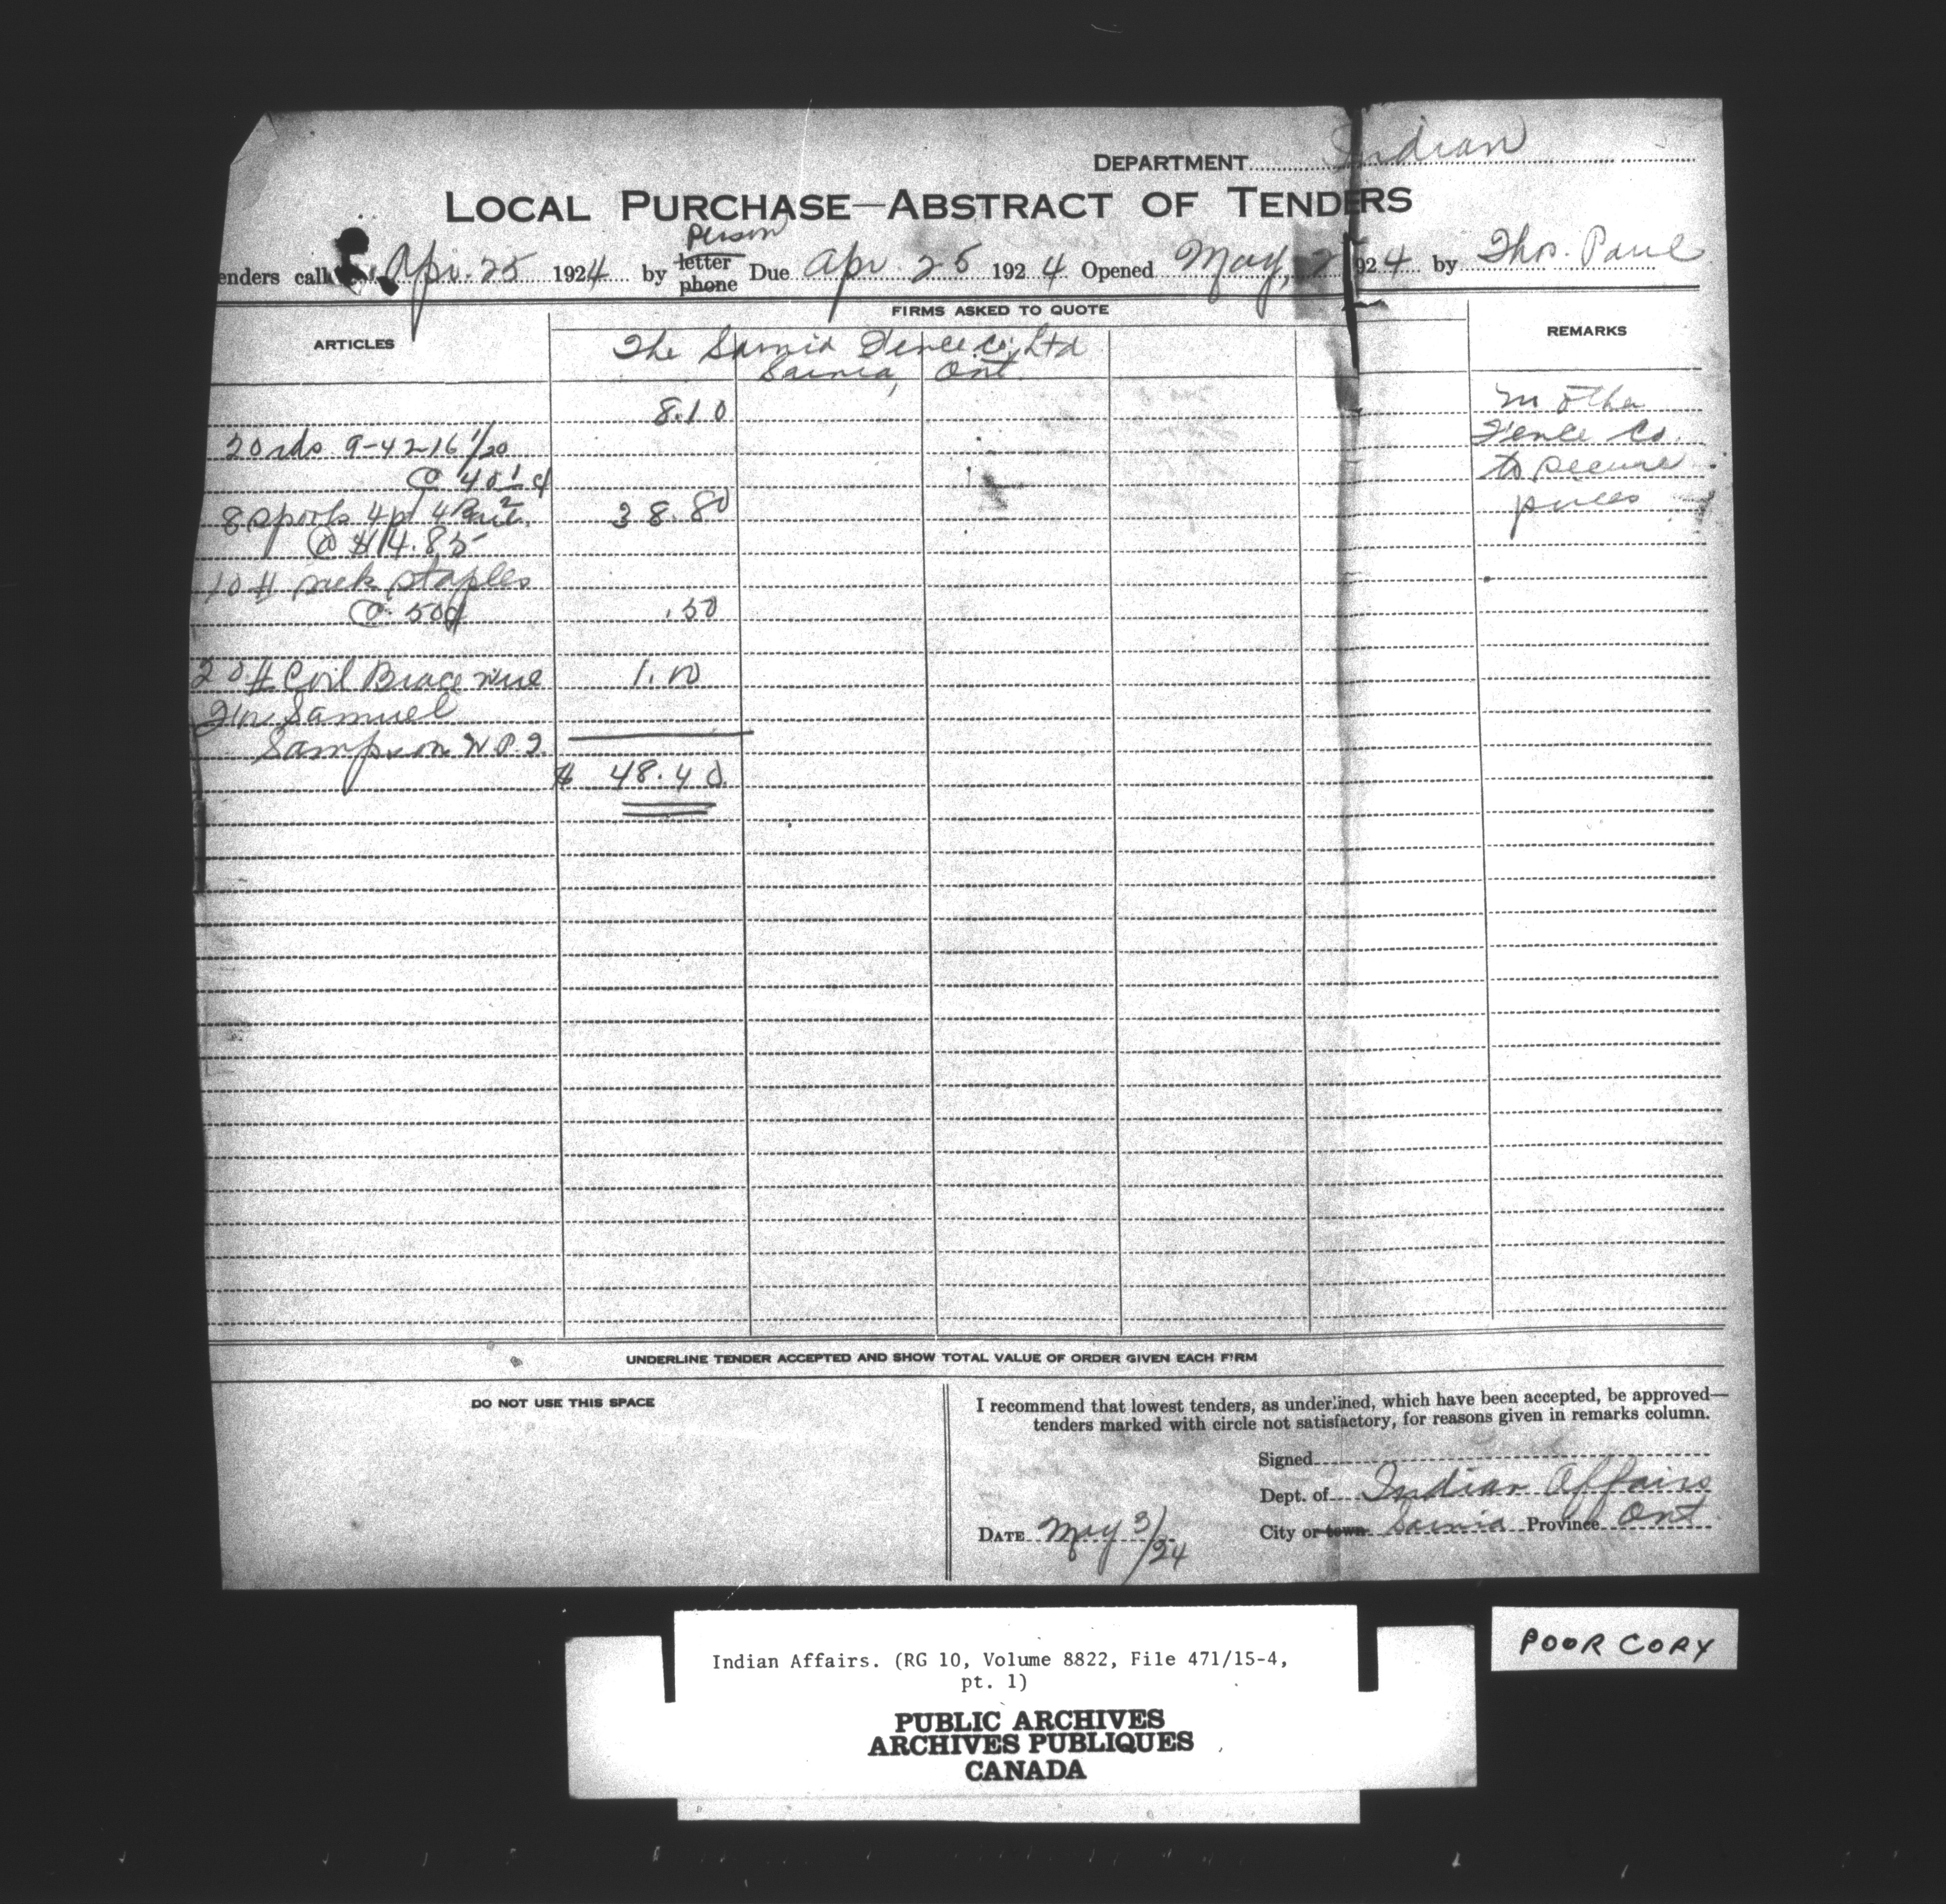 DEPARTMENT Indian
LOCAL PURCHASE—ABSTRACT OF TENDERS
Person
enders call Apr. 25 1924 by letter phone Due Apr. 26 1924 Opened May, 2 1924 by Thos. Paul
FIRMS ASKED TO QUOTE
ARTICLES
REMARKS
The Sarnia Fence Co. Ltd
Sarnia, Ont
8.10
20 rds 9-42-16 1/20
@ 40 1/2 ¢
8 spools 4 pt 4 38.80
@ $14.85
10 # sack staples
@ 50¢ .50
20 # Coil Brace wire 1.00
Samuel
Sampson
$ 48.40
other
Fence Co.
to secure
prices
UNDERLINE TENDER ACCEPTED AND SHOW TOTAL VALUE OF ORDER GIVEN EACH FIRM
DO NOT USE THIS SPACE
I recommend that lowest tenders, as underlined, which have been accepted, be approved—
tenders marked with circle not satisfactory, for reasons given in remarks column.
Signed
Dept. of Indian Affairs
DATE May 3/24 City or town Sarnia Province Ont
POOR COPY
Indian Affairs. (RG 10, Volume 8822, File 471/15-4,
pt. 1)
PUBLIC ARCHIVES
ARCHIVES PUBLIQUES
CANADA